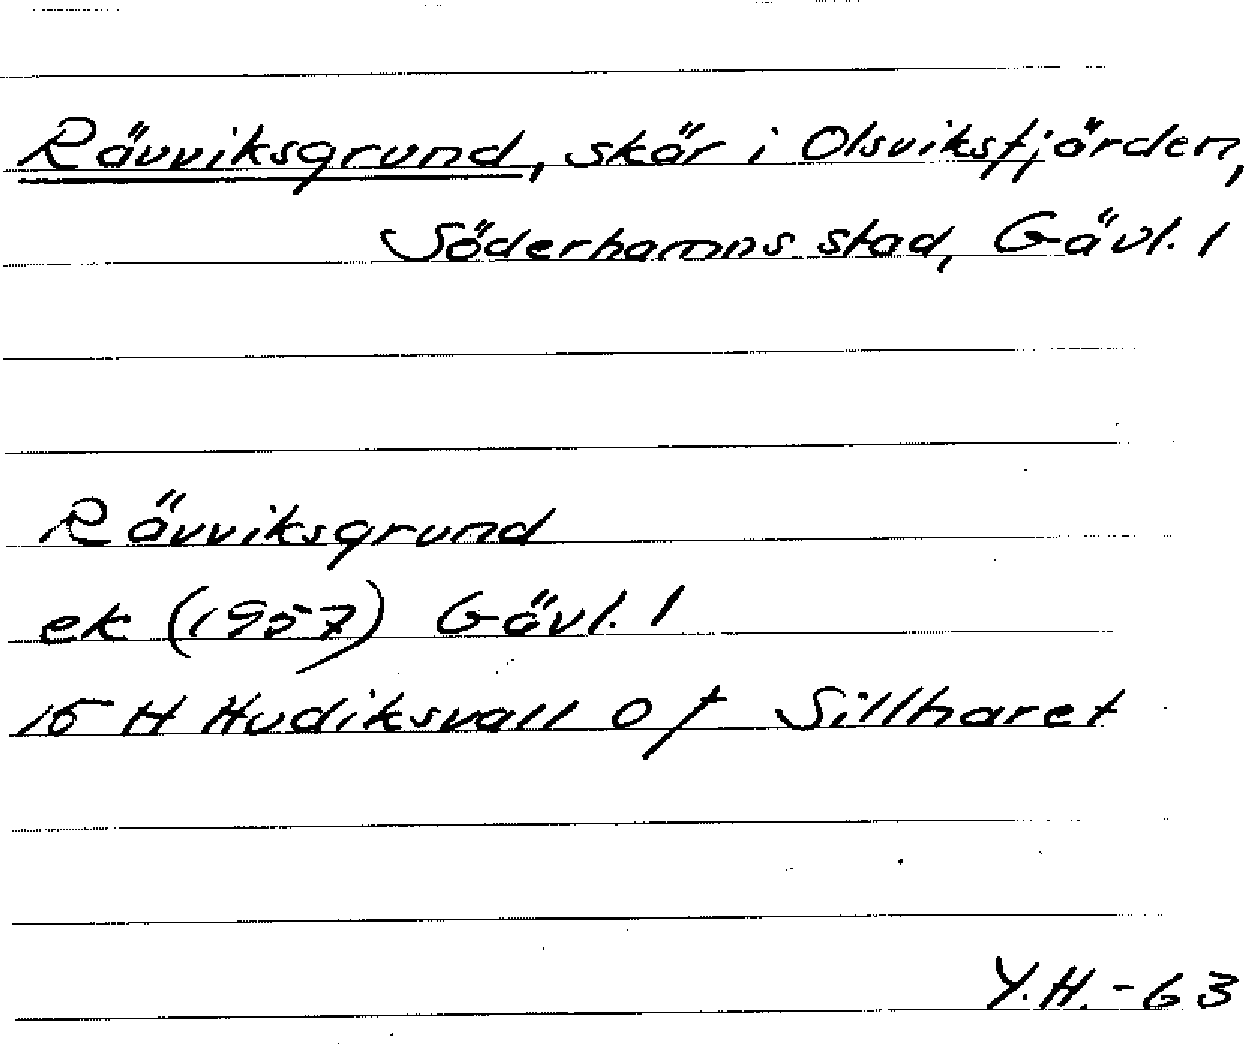 Rävviksgrund, skär i Olsviksfjärden,
Söderhamns stad, Gävl. l
Rävviksgrund
ek (1957) Gävl. l
15 H Hudiksvall of Sillharet
Y.H. - 63